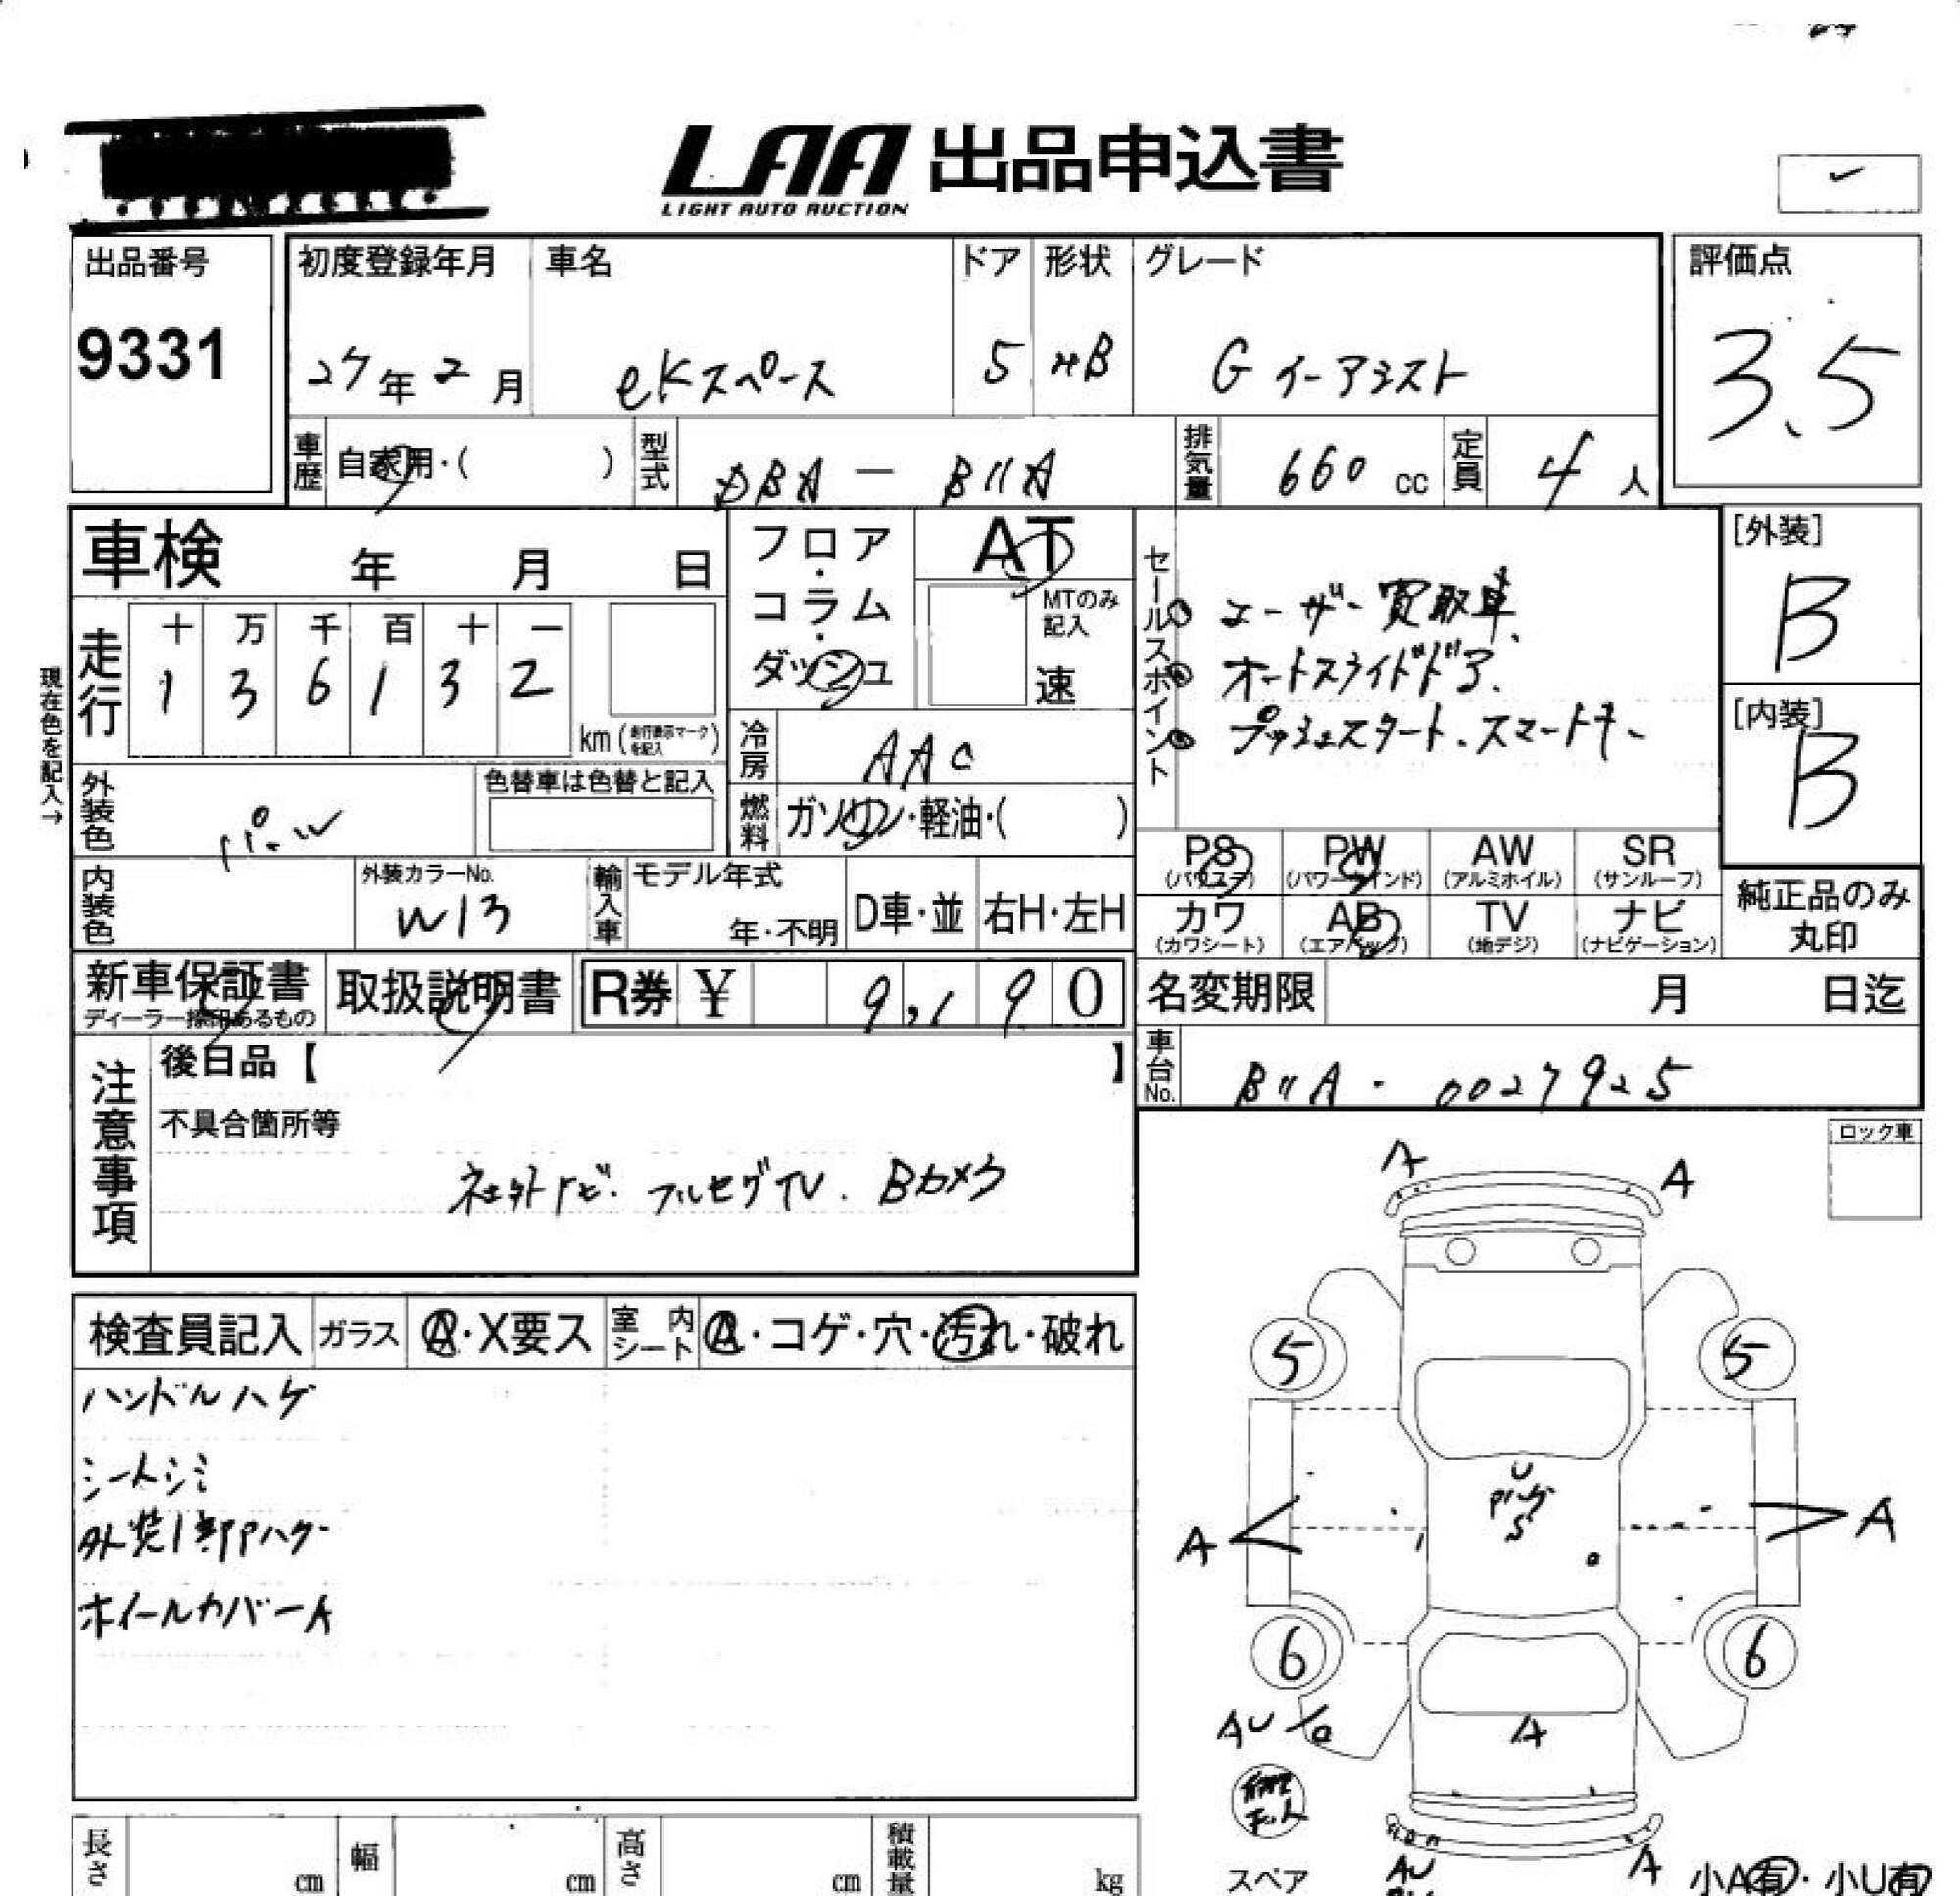 LAA 出品申込書
LIGHT AUTO AUCTION
出品番号
9331
初度登録年月
27年2月
車名
eKスペース
ドア
5
形状
HB
グレード
G イーアシスト
評価点
3.5
車歴
自家用・( )
型式
DBA - B11A
排気量
660 cc
定員
4 人
車検 年 月 日
走行
現在色を記入→
十 万 千 百 十 一
1 3 6 1 3 2
km (走行表示マークを記入)
フロア・コラム・ダッシュ
AT
MTのみ記入
速
冷房
AAC
燃料
ガソリン・軽油・( )
セールスポイント
ユーザー買取車
オートスライドドア
プッシュスタート、スマートキー
[外装]
B
[内装]
B
外装色
パール
色替車は色替と記入
内装色
外装カラーNo.
W13
輸入車
モデル年式
年・不明
D車・並
右H・左H
PS
(パワステ)
PW
(パワーウインド)
AW
(アルミホイル)
SR
(サンルーフ)
カワ
(カワシート)
AB
(エアバッグ)
TV
(地デジ)
ナビ
(ナビゲーション)
純正品のみ
丸印
新車保証書
ディーラー捺印あるもの
取扱説明書
R券 ¥ 9,190
名変期限 月 日迄
車台No.
B11A - 0027925
注意事項
後日品【 】
不具合箇所等
社外ナビ. フルセグTV. Bカメラ
ロック車
検査員記入
ガラス
A・X要ス
室内シート
A・コゲ・穴・汚れ・破れ
ハンドルハゲ
シートシミ
外装1部Pハゲ
ホイールカバーA
A
A
5
5
U
Pハゲ
S
A
A
6
6
AU
A
スペア
AU
A
小A有・小U有
長さ cm
幅 cm
高さ cm
積載量 kg